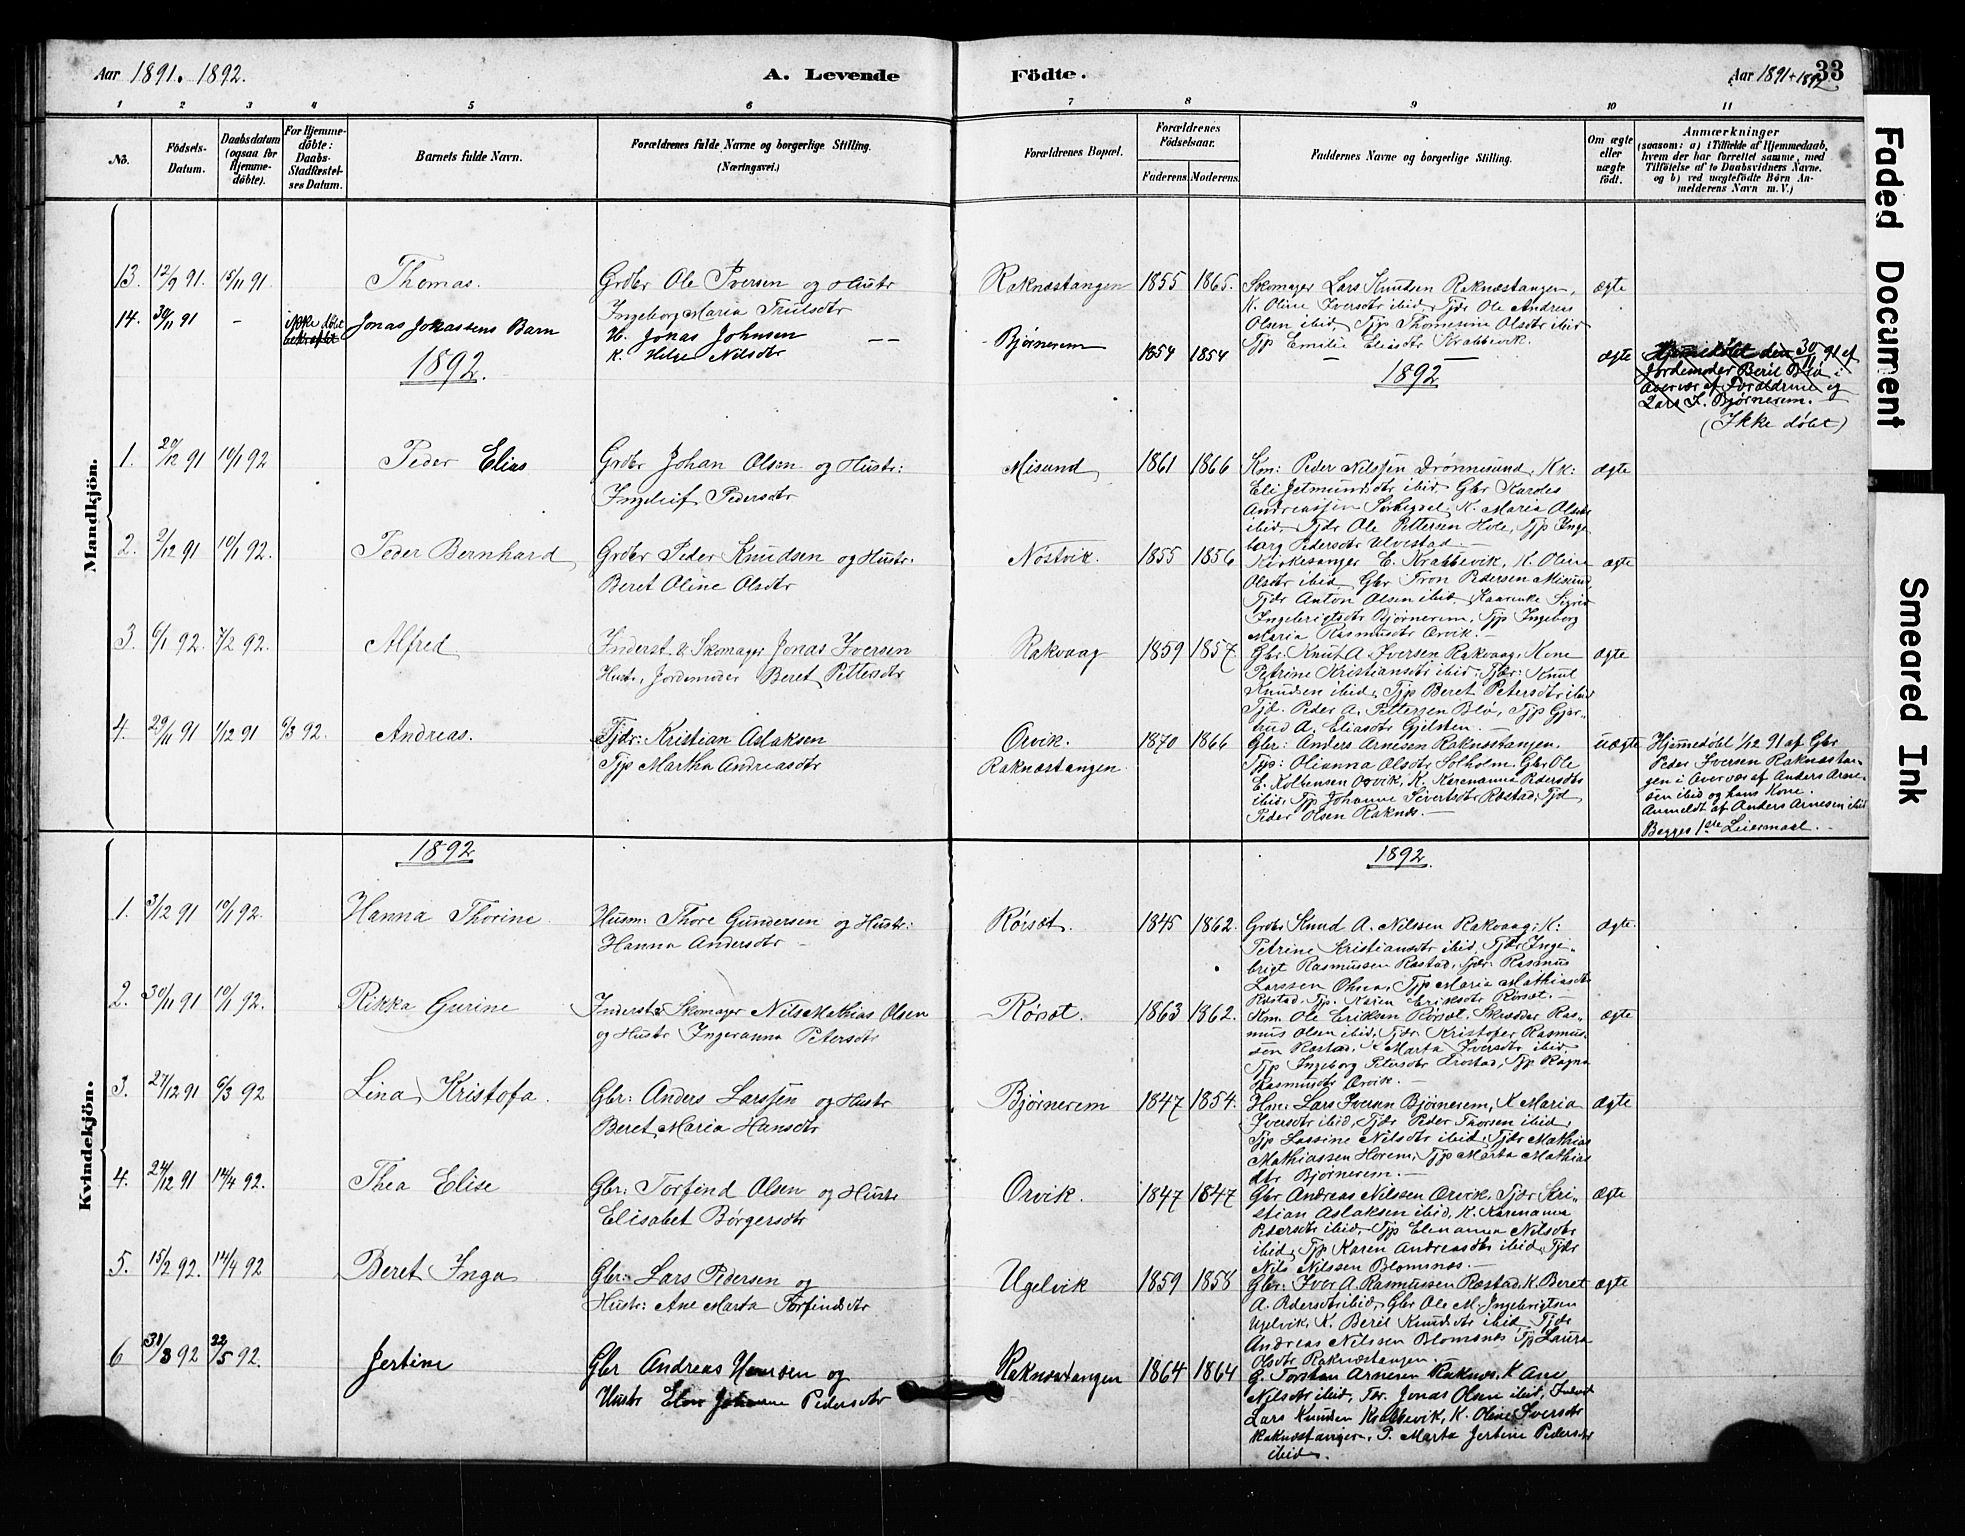 Aar 1891. 1892.
A. Levende
Födte.
Aar 1891+1892
33
1 2 3 4 5 6 7 8 9 10 11
No.
Födsels-Datum.
Daabsdatum (ogsaa for Hjemmedöbte).
For Hjemmedöbte: Daabs-Stadfæstelses Datum.
Barnets fulde Navn.
Forældrenes fulde Navne og borgerlige Stilling. (Næringsvei.)
Forældrenes Bopæl.
Forældrenes Födselsaar.
Faderens. Moderens.
Faddernes Navne og borgerlige Stilling.
Om ægte eller uægte födt.
Anmærkninger
(saasom: a) i Tilfælde af Hjemmedaab,
hvem der har forrettet samme, med
Tilföielse af to Daabsvidners Navne,
og b) ved uægtefödte Börn An-
melderens Navn m. V.)
Mandkjön.
13. 12/9 91. 15/11 91 Thomas. Grdbr Ole Iversen og Hustr
Ingeborg Maria Trulsdtr
Raknæstangen 1855 1865.
Skomager Lars Knudsen Raknæstangen,
K. Oline Iversdtr ibid, Tjdr Ole Andreas
Olsen ibid, Tjp Thomesine Olsdtr ibid
Tjp Emilie Eliasdtr Krabbevik.
ægte
14. 30/11 91 - ikke døbt
Jonas Jonassens Barn
H. Jonas Johnsen
K. Nilsdtr
Bjørnerem 1854 1854 ægte
Hjemmedøbt den 30/11 91 af
Jordemoder Beril Blø i
Overvær af Forældrene og
Lars I. Bjørnerem.
(Ikke døbt)
1892.
1892
1. 20/12 91 10/1 92 Peder Elias Grdbr Johan Olsen og Hustr:
Ingeleif Pedersdtr
Misund 1861 1866
Km: Peder Nilssen Drønnesund, Kk:
Eli Jetmundsdtr ibid, Gbr Kardes
Andreassen, K. Maria Olsdtr
ibid, Tjdr Ole Pettersen Hole, Tjp Inge
borg Pedersdtr Ulvestad
ægte
2. 9/12 91 10/1 92. Peder Bernhard Grdbr Peder Knudsen og Hustr:
Beret Oline Olsdtr
Nøstvik. 1855 1856
Kirkesanger E. Krabbevik, K. Oline
Olsdtr ibid Gbr Tron Pedersen Misund,
Tjdr Anton Olsen ibid. Kaarenke Sigrid
Ingebrigtsdtr Bjørnerem, Tjp Ingeborg
Maria Rasmusdtr Orvik.
ægte
3. 6/1 92. 7/2 92. Alfred Inderst. & Skomager Jonas Iversen
Hustr, Jordemoder Beret Pettersdtr
Rakvaag 1859 1857.
Gbr: Knut A. Iversen Rakvaag, Kone
Petrine Kristiansdtr ibid, Tjdr: Knut
Knudsen ibid, Tjp Beret Petersdtr ibid
Tjd. Peder A. Pettersen Blø, Tjp Gjer-
trud A. Eliasdtr Gjelsten.
ægte
4. 29/11 91 1/12 91 6/3 92. Andreas. Tjdr: Kristian Aslaksen
Tjp Martha Andreasdtr
Orvik.
Raknæstangen. 1870 1866
Gbr: Anders Arnesen Raknæstangen.
Tjp: Olianna Olsdtr Solholm, Gbr Ole
E. Kolbensen Orvik, K. Karenanna Pedersdtr
ibid, Tjp Johanne Sivertsdtr Røstad, Tjd
Peder Olsen Raknæs.
uægte
Hjemmedøbt 1/12 91 af Gbr
Peder Iversen Raknæstan-
gen i Overvær af Anders Arne-
sen ibid og hans Kone.
Anmeldt af Anders Arnesen ibid
Begges 1ste Leiermaal.
Kvindekjön.
1892
1892.
1. 3/12 91 10/1 92. Hanna Thorine. Husm: Thore Gundersen og Hustr:
Hanna Andersdtr
Rørsæt. 1845 1862.
Grdbr Knud A. Nilssen Rakvaag, K:
Petrine Kristiansdtr ibid, Tjdr Inge-
brigt Rasmussen Røstad, Tjdr. Rasmus
Larssen Ohsen, Tjp Maria Mathiasdtr
Røstad, Tjp. Karen Eriksdtr Rørsæt.
Ægte.
2. 30/11 91 10/1 92. Rikka Gurine Inderst & Skomager Nils Mathias Olsen
og Hustr Ingeranna Petersdtr
Rørsæt. 1863 1862.
Km. Ole Eriksen Rørsæt. Skrædder Ras-
mus Olsen ibid, Tjdr Kristofer Rasmus-
sen Røstad, K Marta Iversdtr ibid
Tjp Ingeborg Petersdtr Frostad, Tjp Ragna
Rasmusdtr Orvik.
ægte
3. 27/12 91 6/3 92 Lina Kristofa. Gbr: Anders Larssen og Hustr
Beret Maria Hansdtr
Bjørnerem 1847 1854.
Hm: Lars Iversen Bjørnerem, K Maria
Iversdtr ibid, Tjdr Peder Thorsen ibid,
Tjp Lassine Nilsdtr ibid, Tjdr Mathias
Mathiassen Horem, Tjp Marta Mathias
dtr Bjørnerem.
Ægte
4. 24/12 91 14/4 92. Thea Elise Gbr: Torfind Olsen og Hustr
Elisabet Børgersdtr
Orvik. 1847 1847
Gbr Andreas Nilssen Orvik, Tjdr Kri-
stian Aslaksen ibid, K. Karenanna
Pedersdtr ibid, Tjp Elenanna Nilsdtr
ibid, Tjp Karen Andreasdtr ibid, Tjdr
Nils Nilssen Blomsnæs.
Ægte
5. 15/2 92. 14/4 92 Beret Inga Gbr: Lars Pedersen og
Hustr: Ane Marta Torfindsdtr
Ugelvik 1859 1858
Gbr: Iver A. Rasmussen Røstad, K. Beret
A. Pedersdtr ibid, Gbr Ole M. Ingebrigtsen
Ugelvik, K. Beril Knudsdtr ibid, Tjdr
Andreas Nilssen Blomsnæs Tjp Laura
Olsdtr Raknæstangen
ægte
6 31/3 92 22/5 92. Jertine Gbr Andreas Hansen og
Hustr Johanne Pedersdtr
Raknæstangen 1864 1864
G. Torsten Arnesen Raknæs, K Ane
Nilsdtr ibid, Tdr. Jonas Olsen ibid, Inderst
Lars Knudsen Krabbevik, K. Oline Iversdtr
Raknæstangen, P. Marta Jertine Pedersdtr
ibid.
Faded Document
Smeared Ink